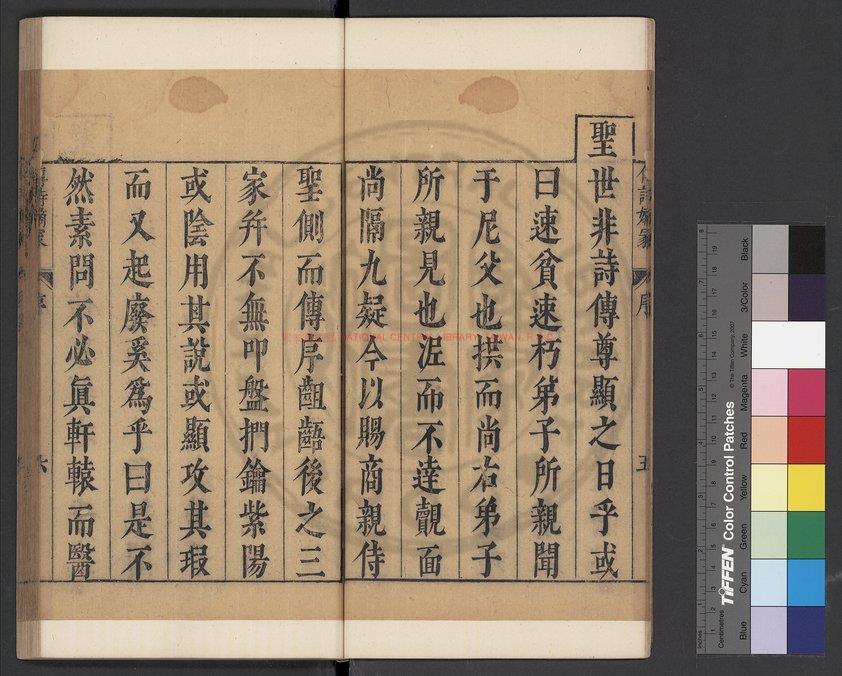 聖世非詩傳尊顯之日乎或
曰速貧速朽弟子所親聞
于尼父也拱而尚右弟子
所親見也泣而不達覿面
尚隔九疑今以賜商親侍
聖側而傳序齟齬後之三
家幷不無叩盤捫鑰紫陽
或陰用其說或顯攻其瑕
而又起廢奚爲乎曰是不
然素問不必眞軒轅而醫
序
五
六
NATIONAL CENTRAL LIBRARY
TIFFEN Color Control Patches
© The Tiffen Company 2007
Centimetres
Inches
Blue
Cyan
Green
Yellow
Red
Magenta
White
3/Color
Black